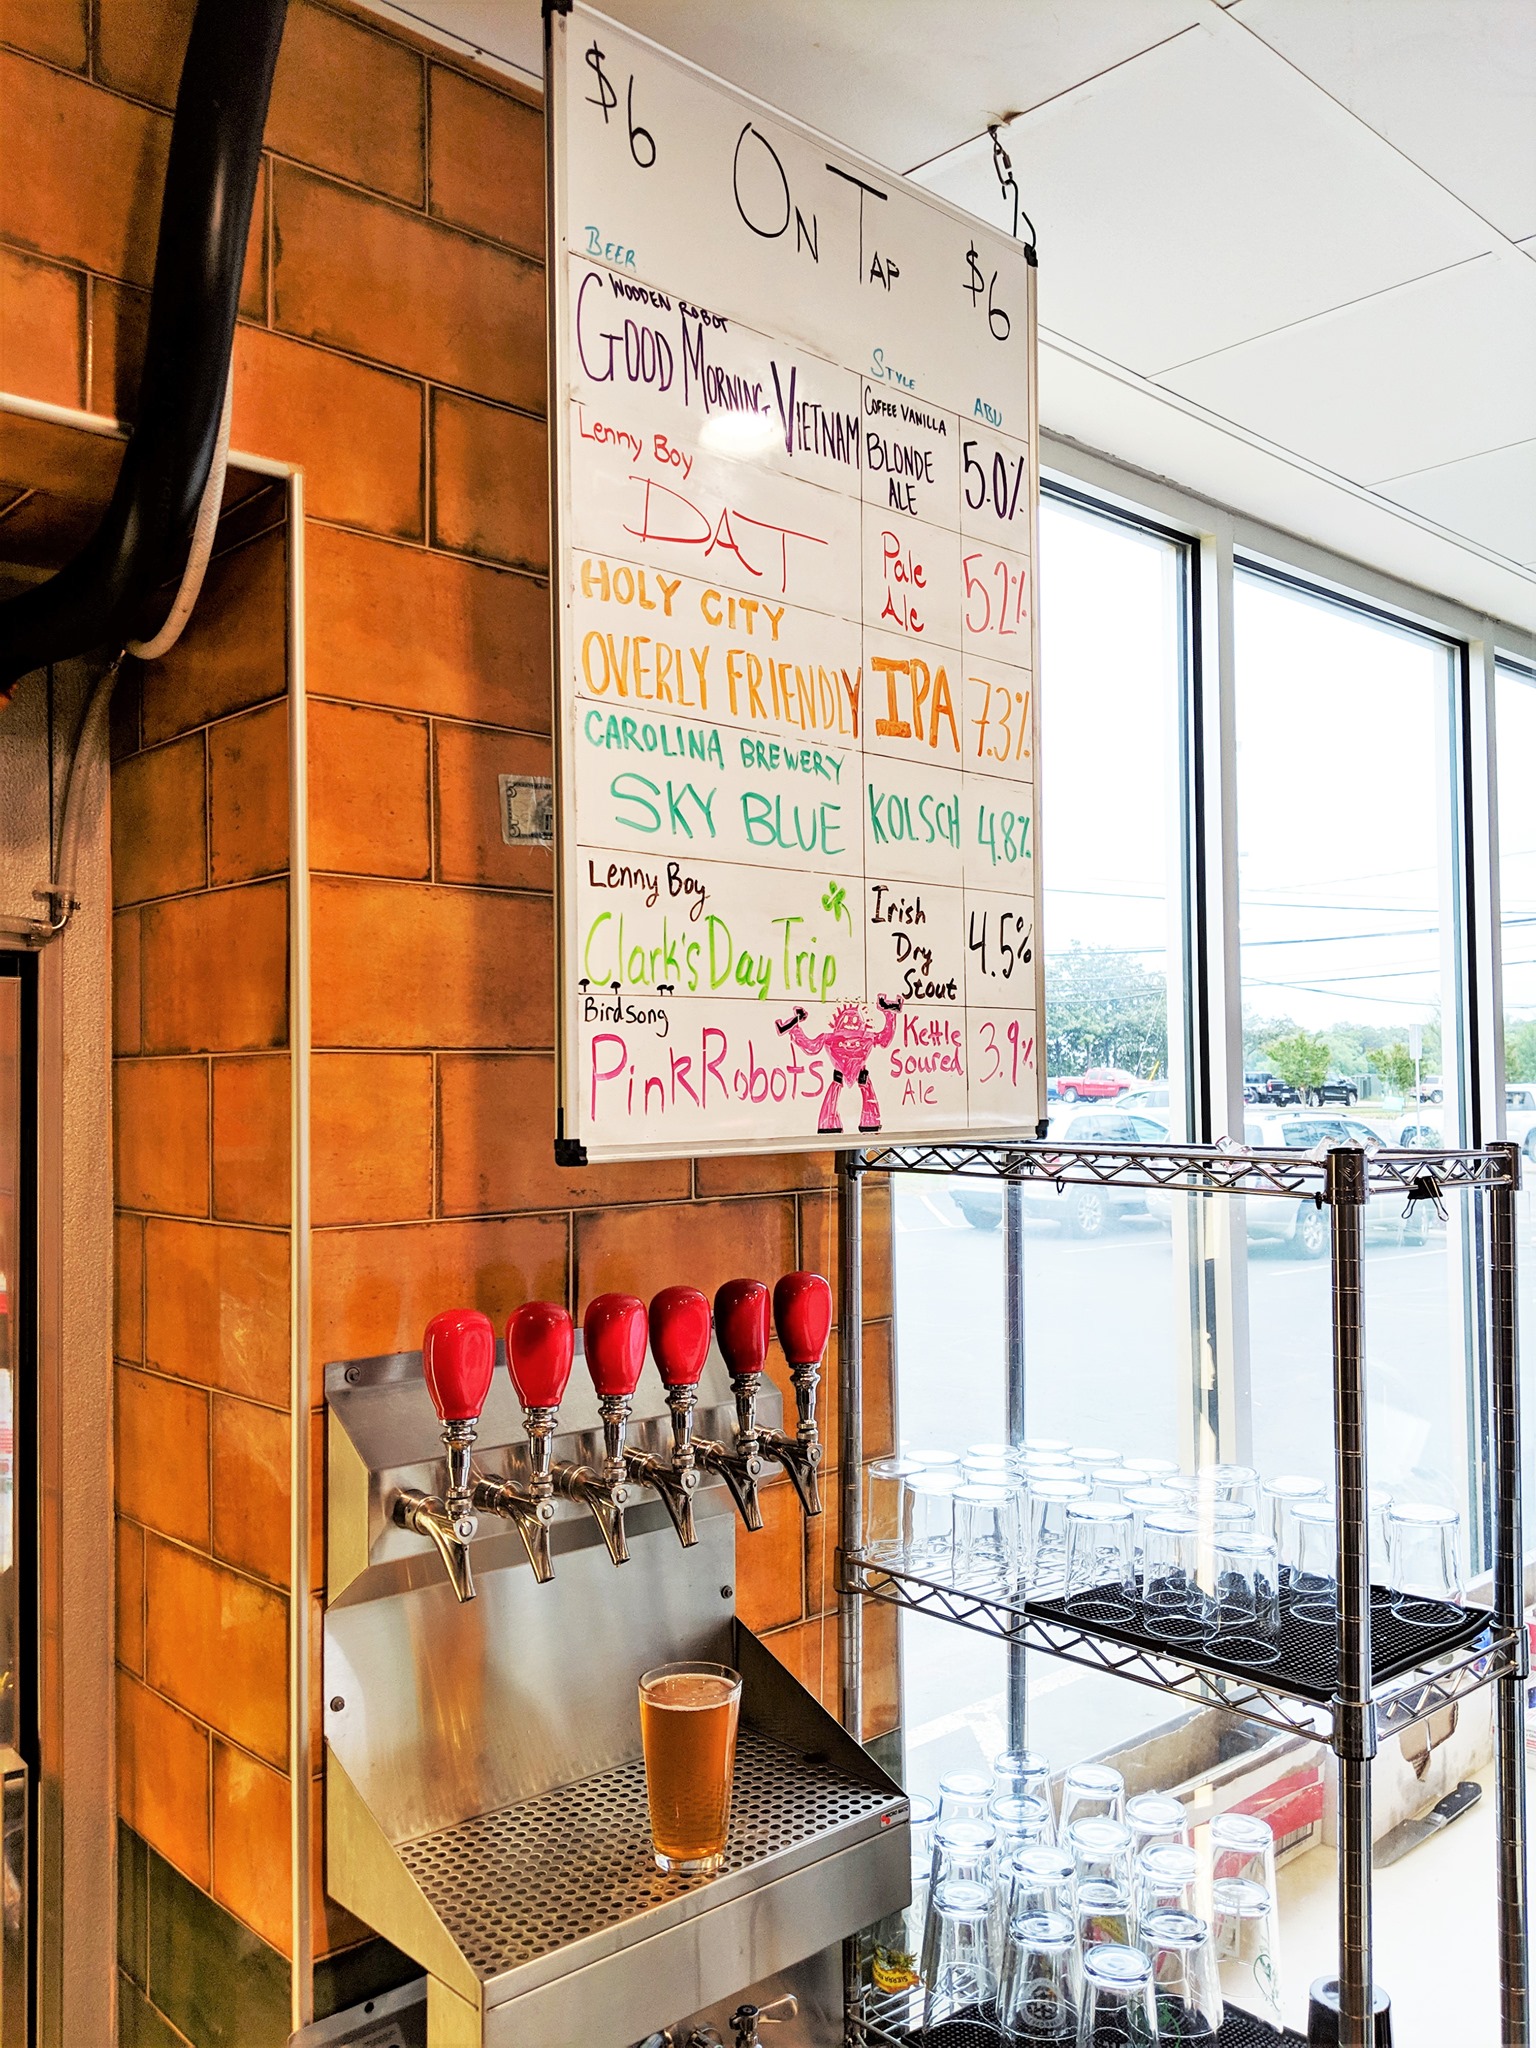 $6 ON TAP $6
BEER STYLE ABV
WOODEN ROBOT
GOOD MORNING VIETNAM
COFFEE VANILLA
BLONDE
ALE
5.0%
Lenny Boy
DAT
Pale
Ale
5.2%
HOLY CITY
OVERLY FRIENDLY
IPA
7.3%
CAROLINA BREWERY
SKY BLUE
KOLSCH
4.8%
Lenny Boy
Clark's Day Trip
Irish
Dry
Stout
4.5%
Birdsong
Pink Robots
Kettle
Soured
Ale
3.9%